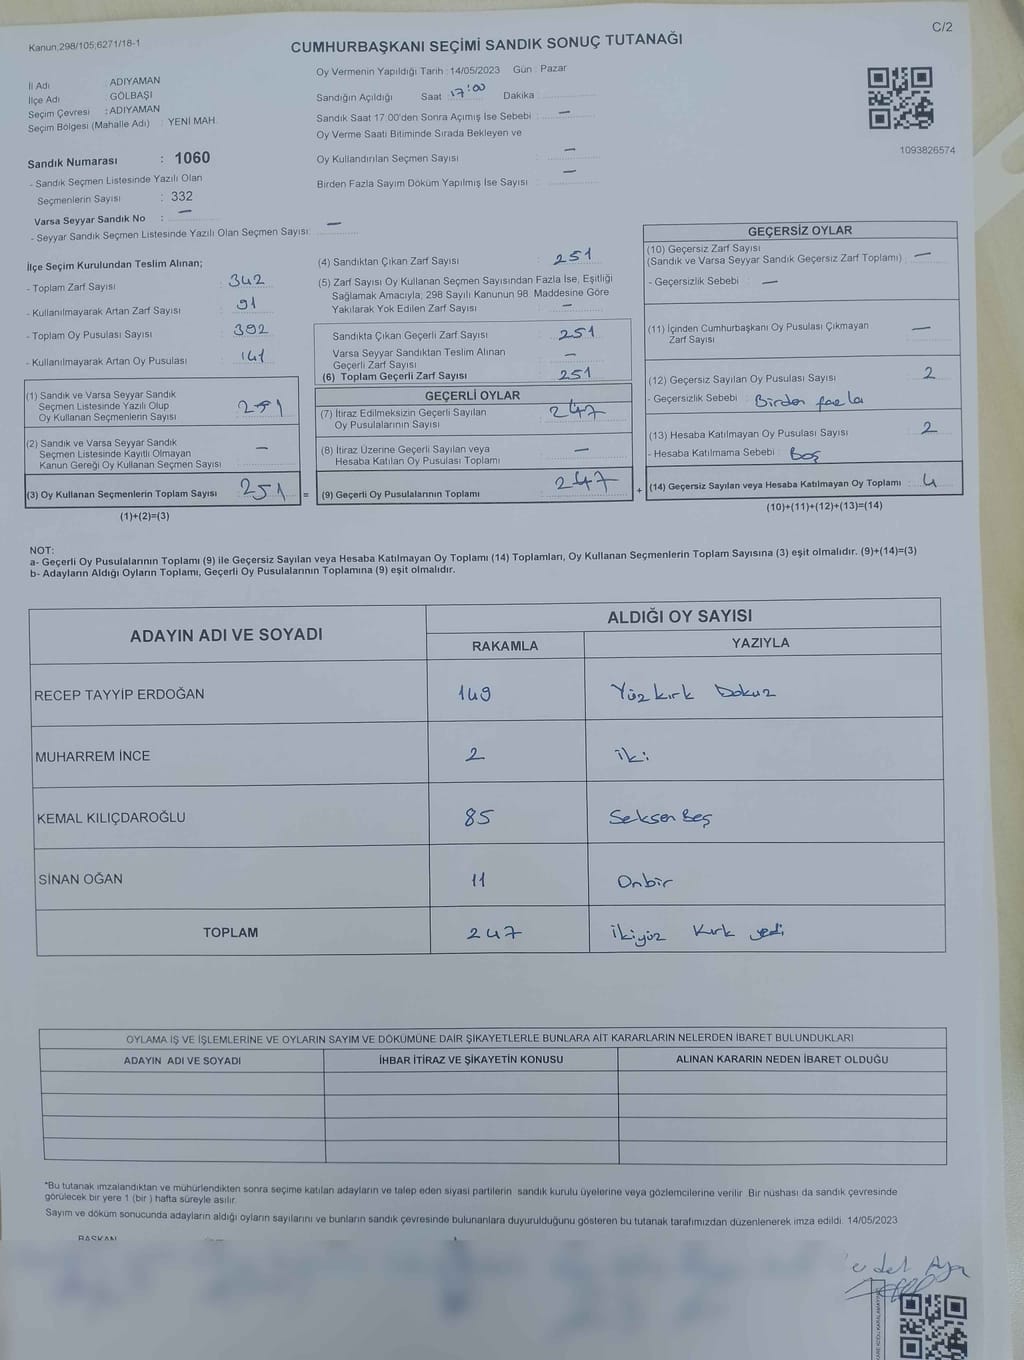 Kanun;298/105;6271/18-1
C/2
CUMHURBAŞKANI SEÇİMİ SANDIK SONUÇ TUTANAĞI
İl Adı : ADIYAMAN
İlçe Adı : GÖLBAŞI
Seçim Çevresi : ADIYAMAN
Seçim Bölgesi (Mahalle Adı) : YENİ MAH.
Sandık Numarası : 1060
- Sandık Seçmen Listesinde Yazılı Olan
Seçmenlerin Sayısı : 332
Varsa Seyyar Sandık No : —
- Seyyar Sandık Seçmen Listesinde Yazılı Olan Seçmen Sayısı: —
Oy Vermenin Yapıldığı Tarih :14/05/2023 Gün : Pazar
Sandığın Açıldığı Saat 17:00 Dakika
Sandık Saat 17.00'den Sonra Açımış İse Sebebi : —
Oy Verme Saati Bitiminde Sırada Bekleyen ve
Oy Kullandırılan Seçmen Sayısı : —
Birden Fazla Sayım Döküm Yapılmış İse Sayısı : —
1093826574
İlçe Seçim Kurulundan Teslim Alınan;
- Toplam Zarf Sayısı : 342
- Kullanılmayarak Artan Zarf Sayısı : 91
- Toplam Oy Pusulası Sayısı : 392
- Kullanılmayarak Artan Oy Pusulası : 141
(1) Sandık ve Varsa Seyyar Sandık
Seçmen Listesinde Yazılı Olup
Oy Kullanan Seçmenlerin Sayısı : 251
(2) Sandık ve Varsa Seyyar Sandık
Seçmen Listesinde Kayıtlı Olmayan
Kanun Gereği Oy Kullanan Seçmen Sayısı : —
(3) Oy Kullanan Seçmenlerin Toplam Sayısı : 251
(1)+(2)=(3)
(4) Sandıktan Çıkan Zarf Sayısı : 251
(5) Zarf Sayısı Oy Kullanan Seçmen Sayısından Fazla İse, Eşitliği
Sağlamak Amacıyla, 298 Sayılı Kanunun 98. Maddesine Göre
Yakılarak Yok Edilen Zarf Sayısı : —
Sandıkta Çıkan Geçerli Zarf Sayısı : 251
Varsa Seyyar Sandıktan Teslim Alınan
Geçerli Zarf Sayısı : —
(6) Toplam Geçerli Zarf Sayısı : 251
GEÇERLİ OYLAR
(7) İtiraz Edilmeksizin Geçerli Sayılan
Oy Pusulalarının Sayısı : 247
(8) İtiraz Üzerine Geçerli Sayılan veya
Hesaba Katılan Oy Pusulası Toplamı : —
= (9) Geçerli Oy Pusulalarının Toplamı : 247
GEÇERSİZ OYLAR
(10) Geçersiz Zarf Sayısı
(Sandık ve Varsa Seyyar Sandık Geçersiz Zarf Toplamı) : —
- Geçersizlik Sebebi : —
(11) İçinden Cumhurbaşkanı Oy Pusulası Çıkmayan
Zarf Sayısı : —
(12) Geçersiz Sayılan Oy Pusulası Sayısı : 2
- Geçersizlik Sebebi : Birden fazla
(13) Hesaba Katılmayan Oy Pusulası Sayısı : 2
- Hesaba Katılmama Sebebi : Boş
+ (14) Geçersiz Sayılan veya Hesaba Katılmayan Oy Toplamı : 4
(10)+(11)+(12)+(13)=(14)
NOT:
a- Geçerli Oy Pusulalarının Toplamı (9) ile Geçersiz Sayılan veya Hesaba Katılmayan Oy Toplamı (14) Toplamları, Oy Kullanan Seçmenlerin Toplam Sayısına (3) eşit olmalıdır. (9)+(14)=(3)
b- Adayların Aldığı Oyların Toplamı, Geçerli Oy Pusulalarının Toplamına (9) eşit olmalıdır.
ADAYIN ADI VE SOYADI
ALDIĞI OY SAYISI
RAKAMLA YAZIYLA
RECEP TAYYİP ERDOĞAN 149 Yüz kırk Dokuz
MUHARREM İNCE 2 İki
KEMAL KILIÇDAROĞLU 85 Seksen Beş
SİNAN OĞAN 11 Onbir
TOPLAM 247 İkiyüz Kırk yedi
OYLAMA İŞ VE İŞLEMLERİNE VE OYLARIN SAYIM VE DÖKÜMÜNE DAİR ŞİKAYETLERLE BUNLARA AİT KARARLARIN NELERDEN İBARET BULUNDUKLARI
ADAYIN ADI VE SOYADI İHBAR İTİRAZ VE ŞİKAYETİN KONUSU ALINAN KARARIN NEDEN İBARET OLDUĞU
*Bu tutanak imzalandıktan ve mühürlendikten sonra seçime katılan adayların ve talep eden siyasi partilerin sandık kurulu üyelerine veya gözlemcilerine verilir. Bir nüshası da sandık çevresinde
görülecek bir yere 1 (bir ) hafta süreyle asılır.
Sayım ve döküm sonucunda adayların aldığı oyların sayılarını ve bunların sandık çevresinde bulunanlara duyurulduğunu gösteren bu tutanak tarafımızdan düzenlenerek imza edildi. 14/05/2023
BAŞKAN